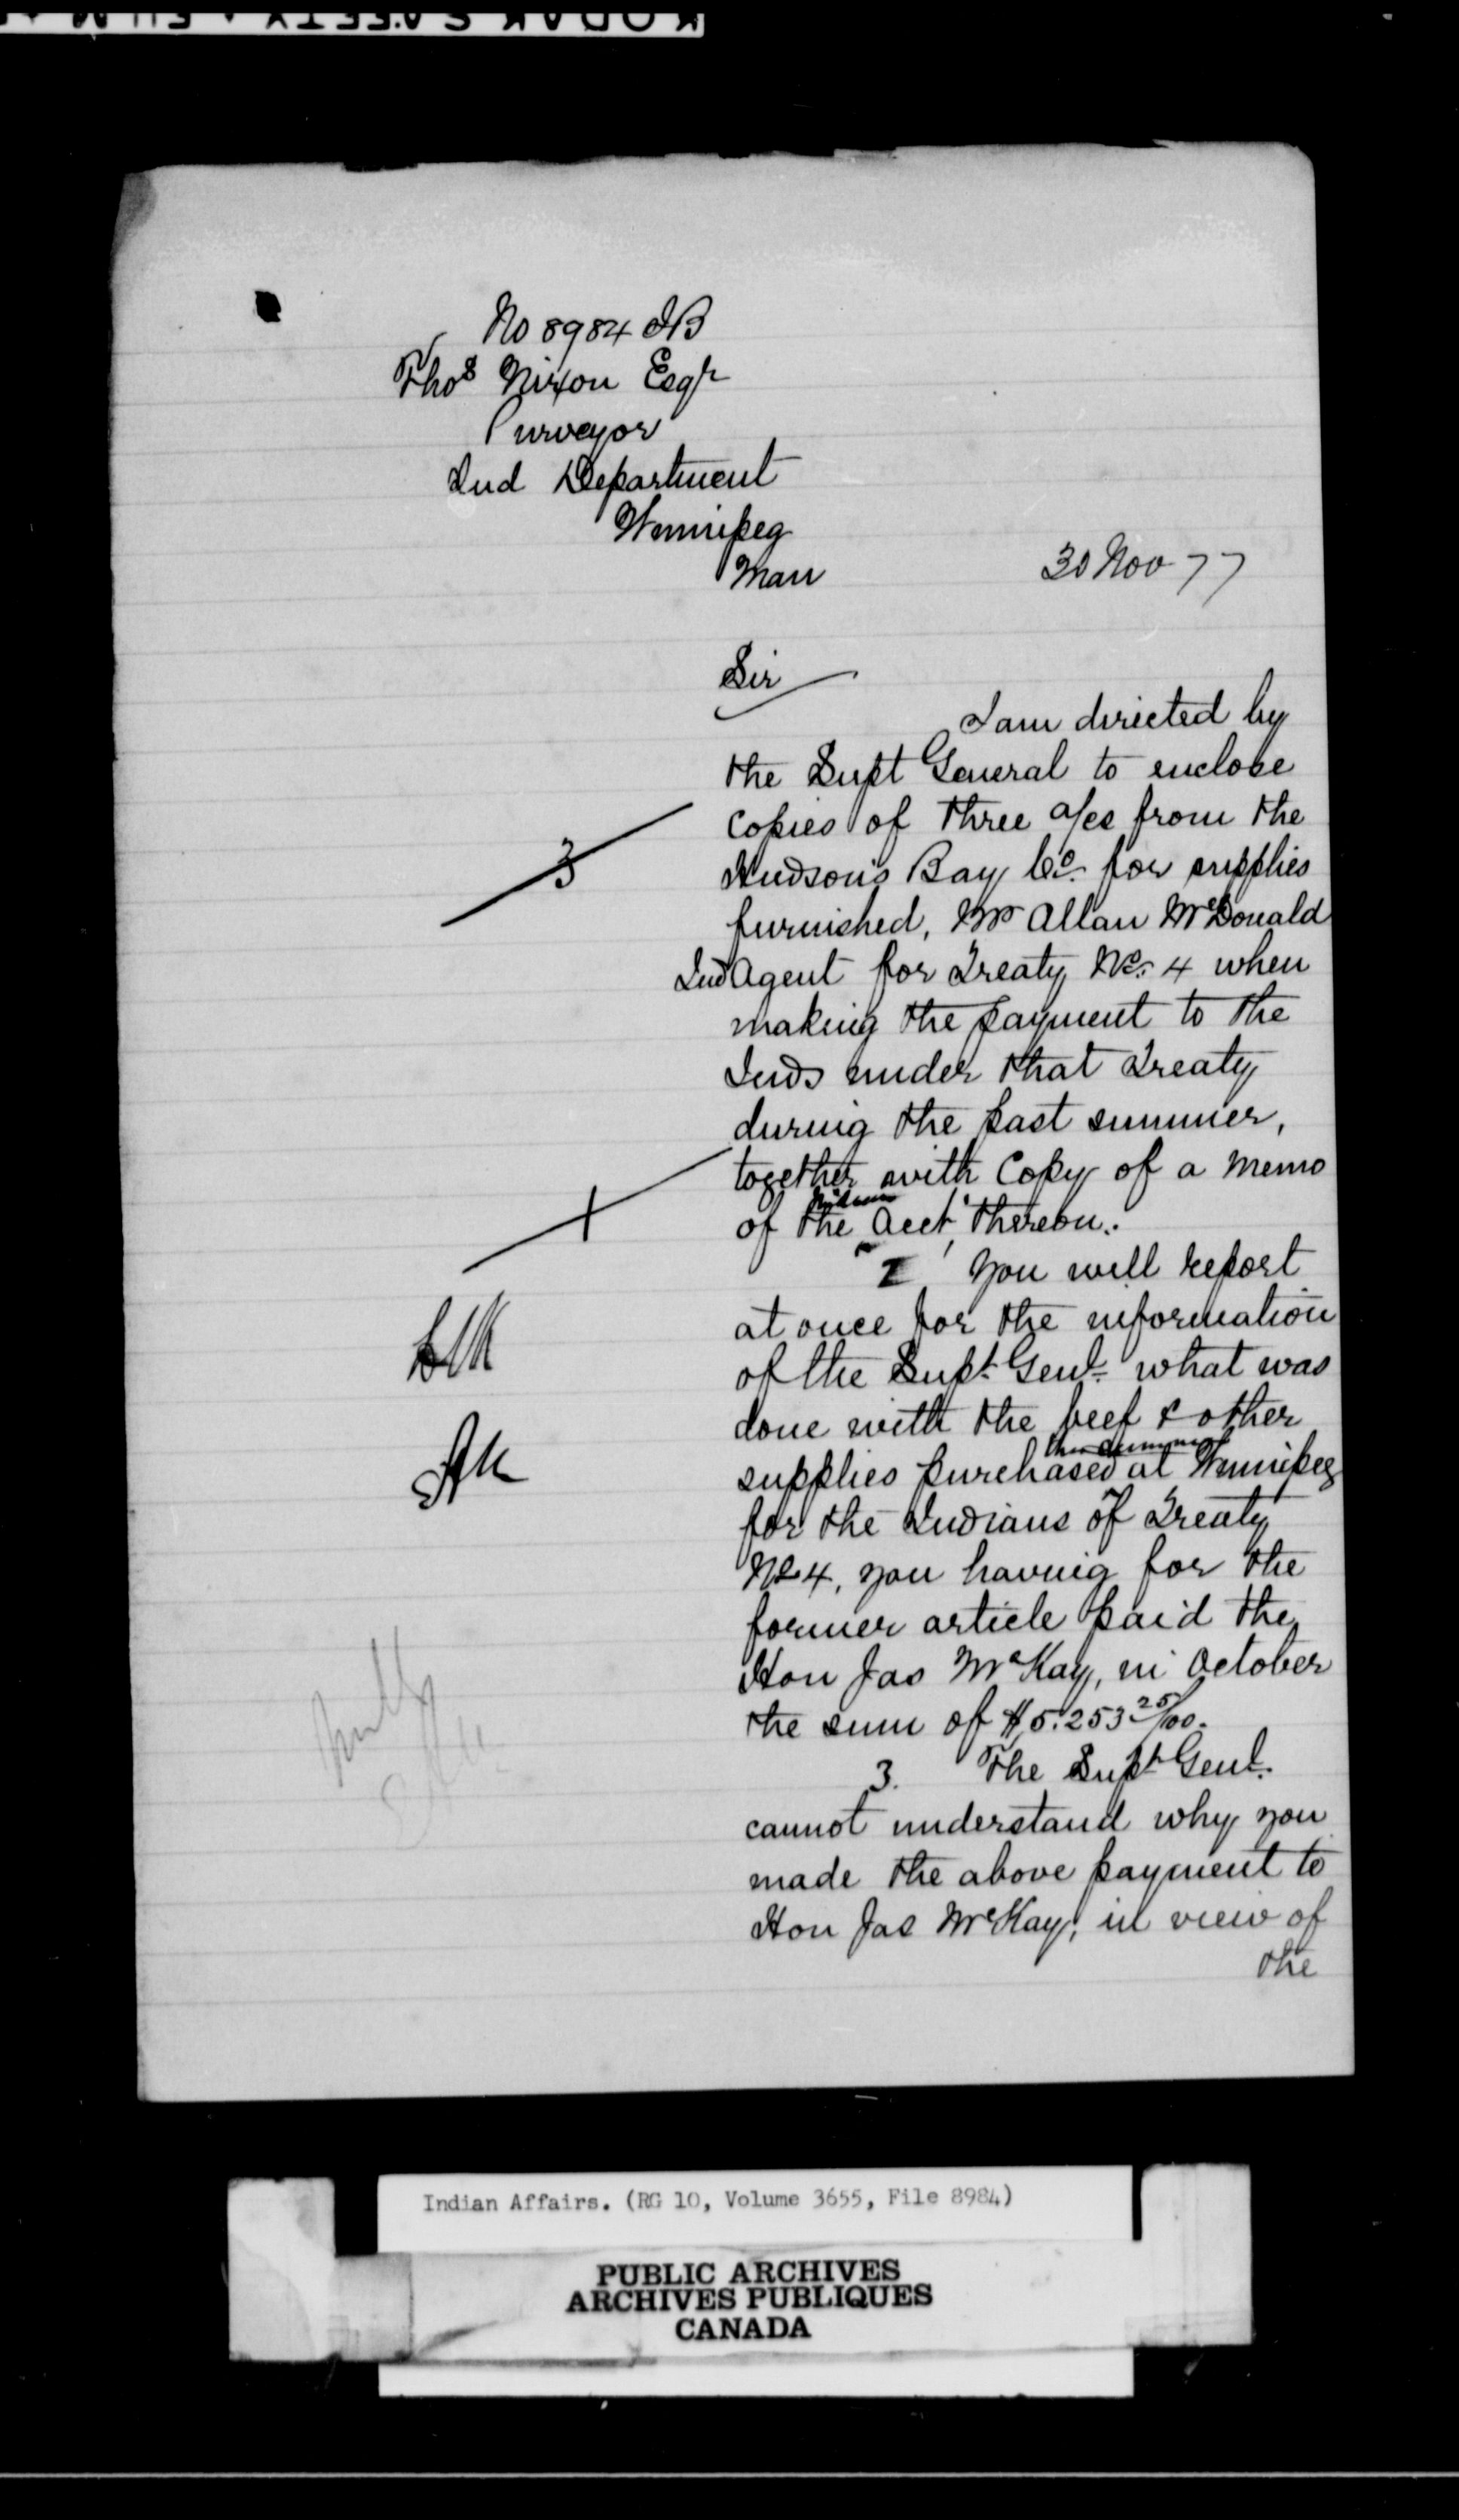 KODAK SAFETY FILM
No 8984 IB
Thos Nixon Esqr
Purveyor
Ind Department
Winnipeg
Man
30 Nov 77
Sir
I am directed by
the Supt General to enclose
copies of three a/cs from the
3
Hudson's Bay Co. for supplies
furnished, Mr Allan McDonald
Ind Agent for Treaty No. 4 when
making the payment to the
Inds under that Treaty
during the past summer,
together with Copy of a Memo
1
of the Acct, thereon.
2 You will report
at once for the information
of the Supt Genl. what was
done with the beef & other
this summer
supplies purchased at Winnipeg
for the Indians of Treaty
No 4, you having for the
former article paid the
Hon Jas McKay, in October
the sum of $5.253 25/100.
3. The Supt Genl.
cannot understand why you
made the above payment to
Hon Jas McKay, in view of
the
Indian Affairs. (RG 10, Volume 3655, File 8984)
PUBLIC ARCHIVES
ARCHIVES PUBLIQUES
CANADA